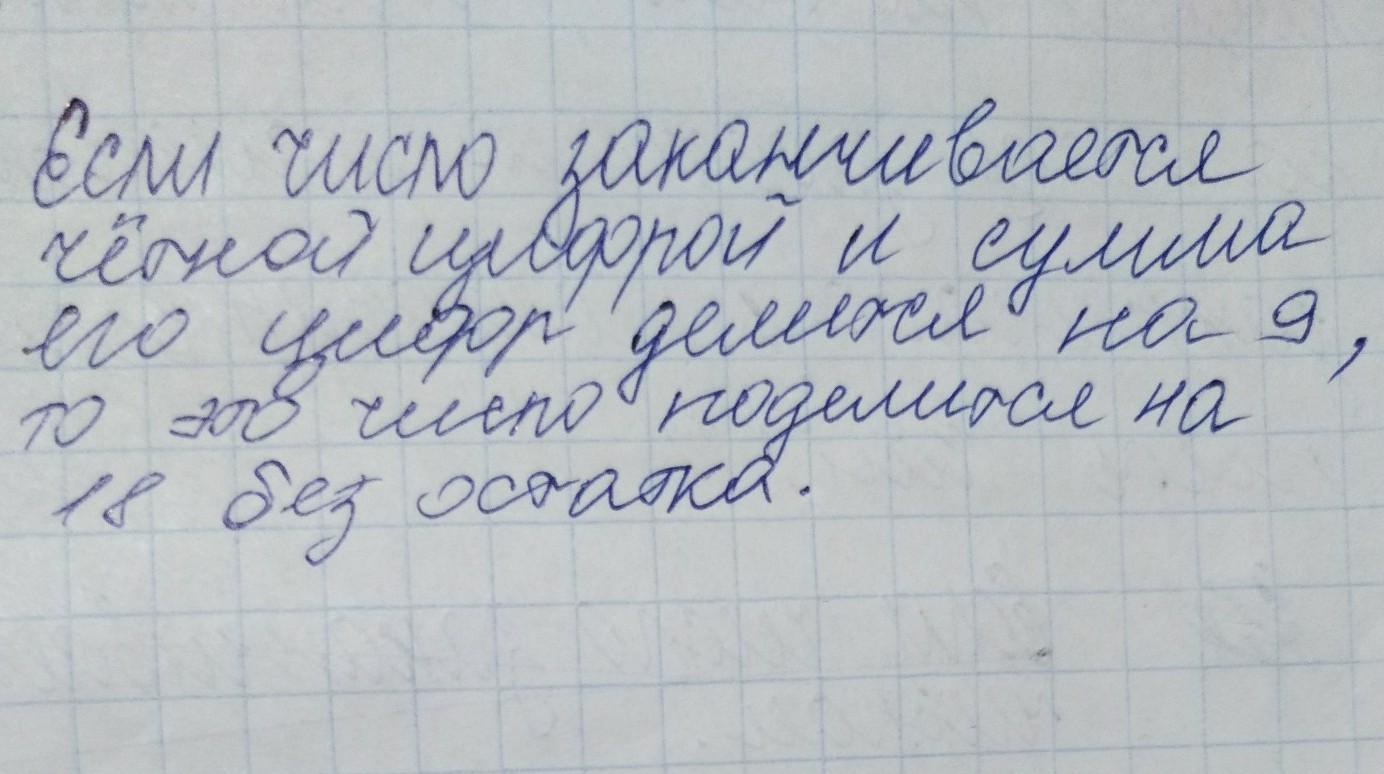 Если число заканчивается
чётной цифрой и сумма
его цифр делится на 9,
то это число поделится на
18 без остатка.